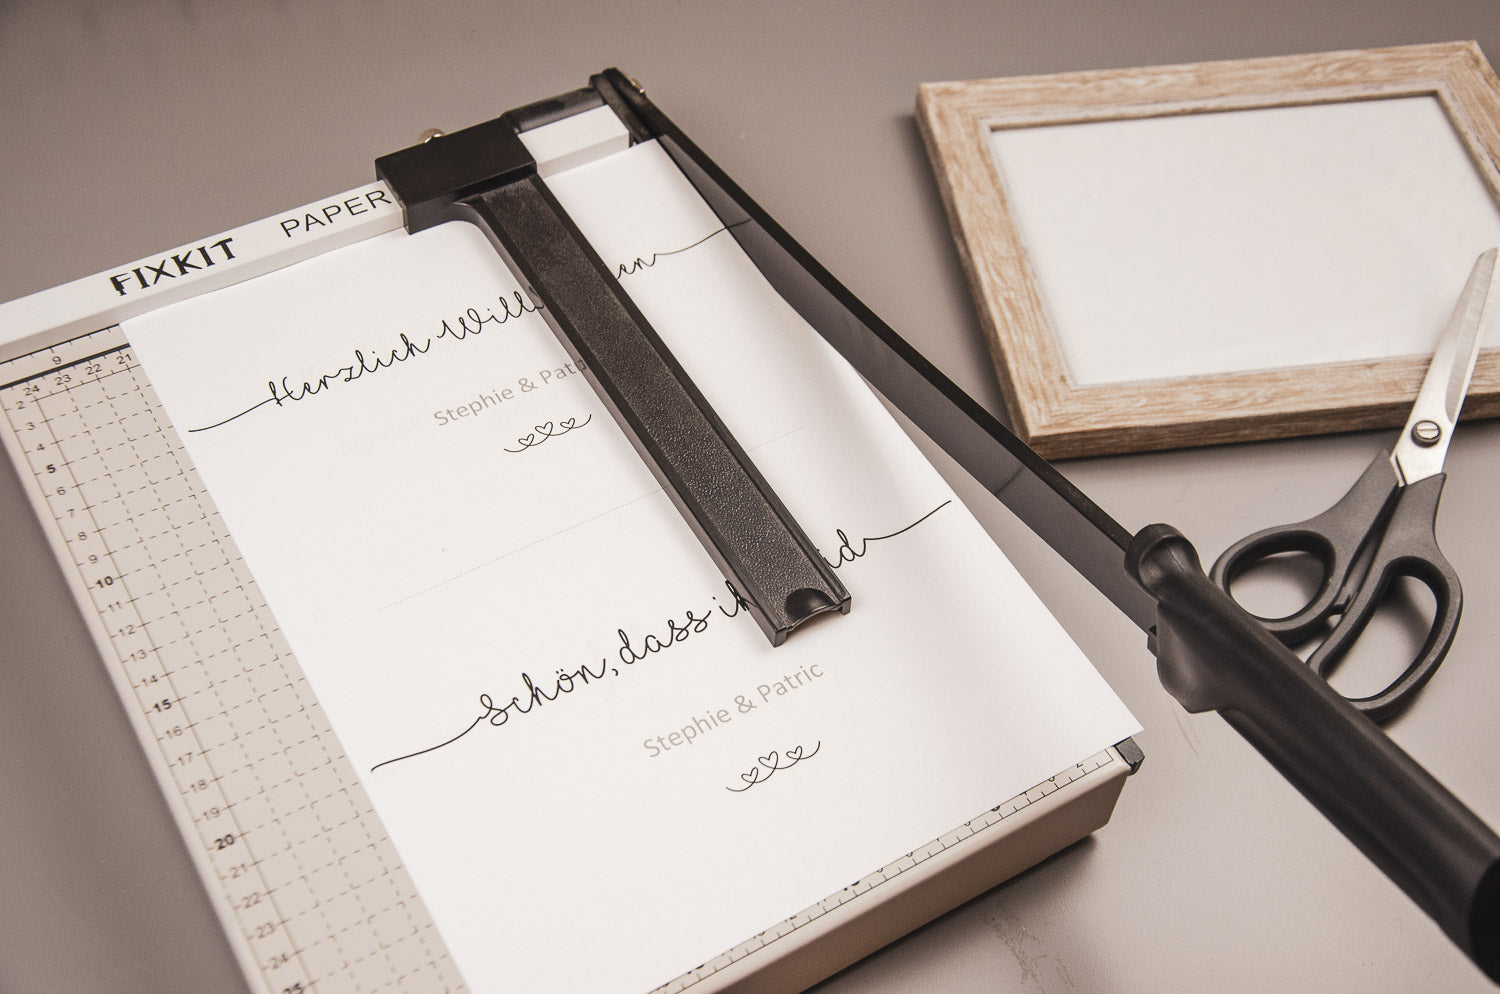 FIXKIT PAPER
Herzlich Will en
Stephie & Patri
schön, dass ih id
Stephie & Patric
9
24 23 22 21
2
3
4
5
6
7
8
9
10
11
12
13
14
15
16
17
18
19
20
21
22
23
24
25